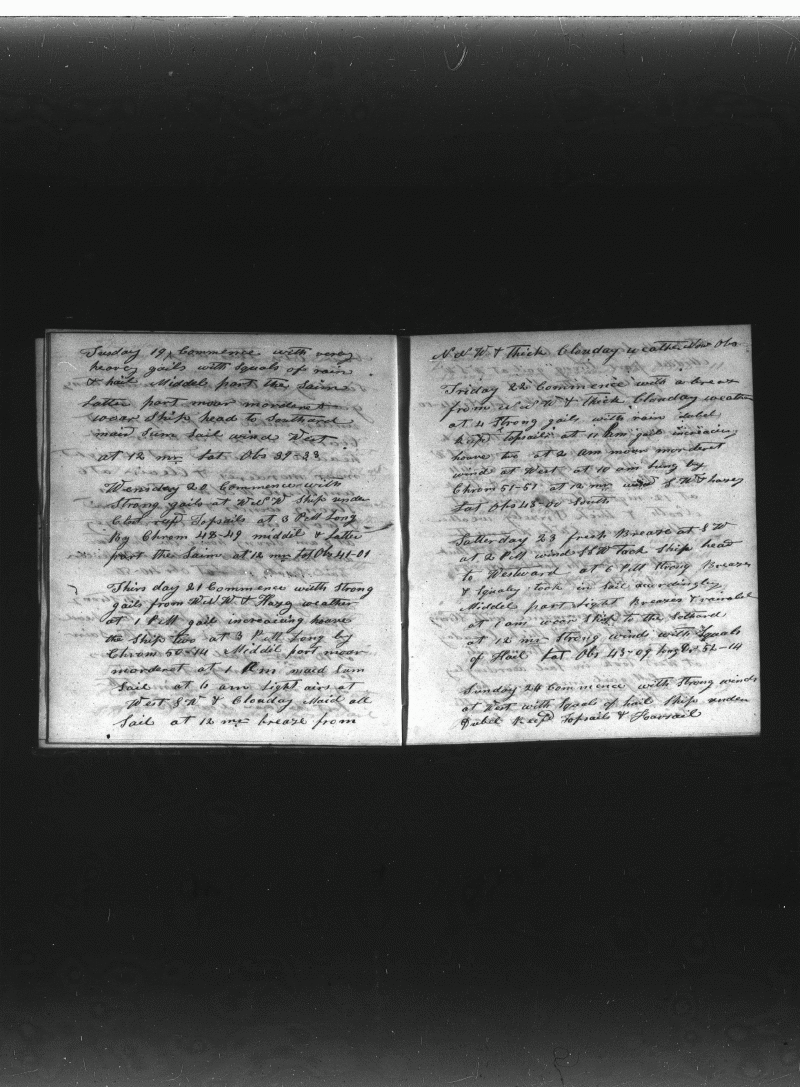 Tusday 19, Commence with very
heavey gails with Squals of rain
& hail Middel part the Saim
Latter part moor morderet
woar Ship head to Southard
maid Sum Sail wind West
at 12 mr Lat Obs 39-33
Wensday 20 Commence with
Strong gails at W Ship under
Clos reefd Topsails at 3 PM Long
by Chrom 48-49 middel & Latter
part the Saim at 12 mr Lat Obs 41-01
Thirsday 21 Commence with Strong
gails from W N W & Hazy weather
at 1 PM gail increaceing heave
the Ship two at 3 PM Long by
Chrom 50-14 Middel part moor
morderet at 1 Am maid Sum
Sail at 6 am Light airs at
West S W & Clouday Maid all
Sail at 12 mr breaze from
N N W & thick Clouday weather Now Obs
Friday 22 Commence with a breaz
from N W & thick Clouday weather
at 4 Strong gails with rain dubel
Reefd Topsails at 11 Pm gail increacing
heave two at 2 am moor morderet
wind at West at 10 am Lung by
Chrom 51-51 at 12 mr wind S W & hazey
Lat Obs 43-00 South
Satterday 23 fresh Breaze at S W
at 2 PM wind SSW Took Ship head
to Westward at 6 PM Strong Breazes
& Squaley took in Sail acordingley
Middel part Light Breazes & variabel
at 1 am wear Ship to the Sothard
at 12 mr Strong winds with Squals
of Hail Lat Obs 43-09 Lung 52-14
Sunday 24 Commence with Strong winds
at West with Squals of hail Ship under
Dubel Reefd Topsails & Foarsail